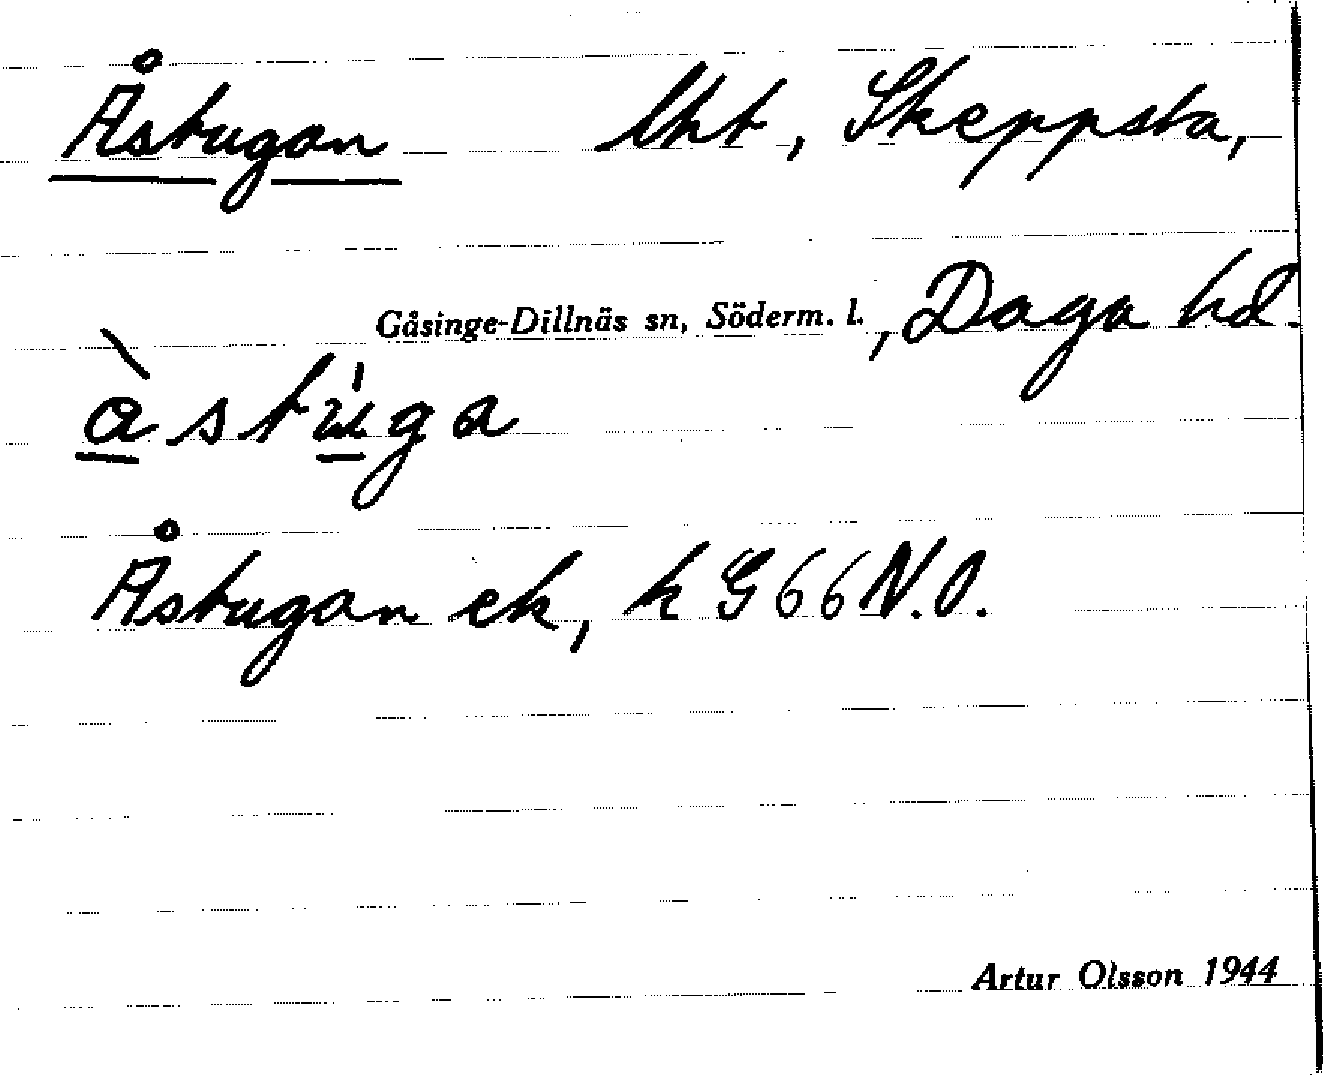 Åstugan lht, Skeppsta,
Gåsinge-Dillnäs sn, Söderm. l., Daga hd.
àstu̇ga
Åstugan ek, k G66 N.O.
Artur Olsson 1944